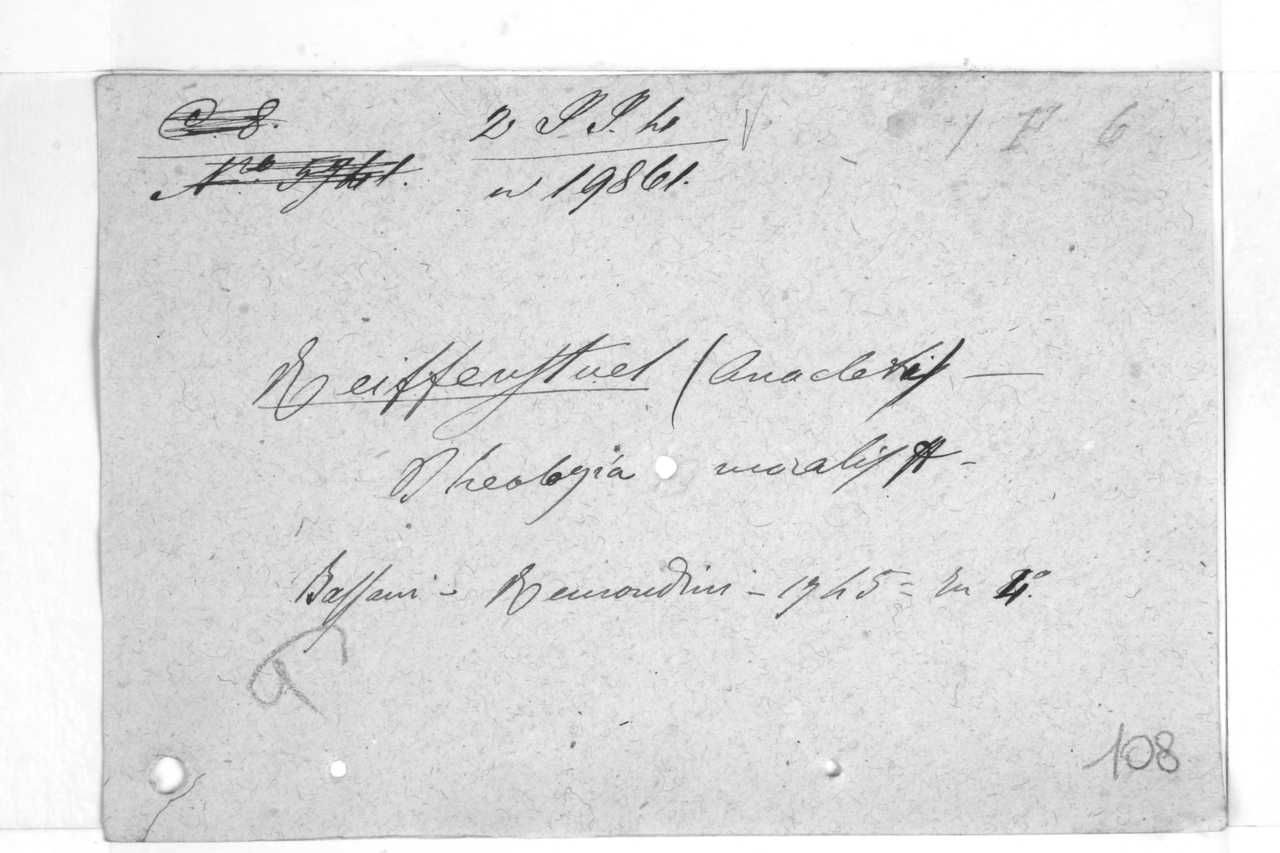 C. 8. 2 P. P. h
Nro 5741. n 19861.
1 7 6
Reiffenstuel (Anacleti) —
Theologia moralis
Bassani - Remondini - 1745 = In 4º.
108